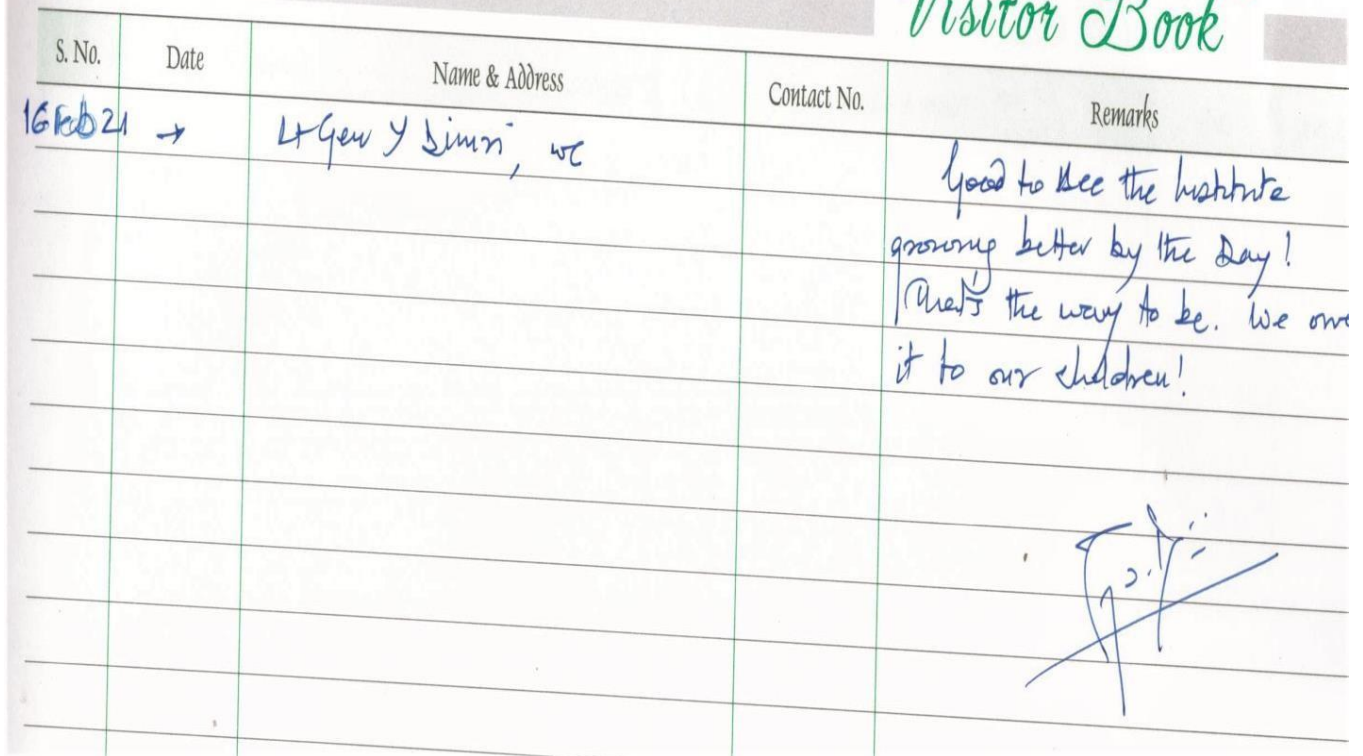 Visitor Book
S. No. Date Name & Address Contact No. Remarks
16 Feb 21 → Lt Gen Y Dimri, WC
Good to see the Institute
growing better by the Day!
That's the way to be. We owe
it to our children!